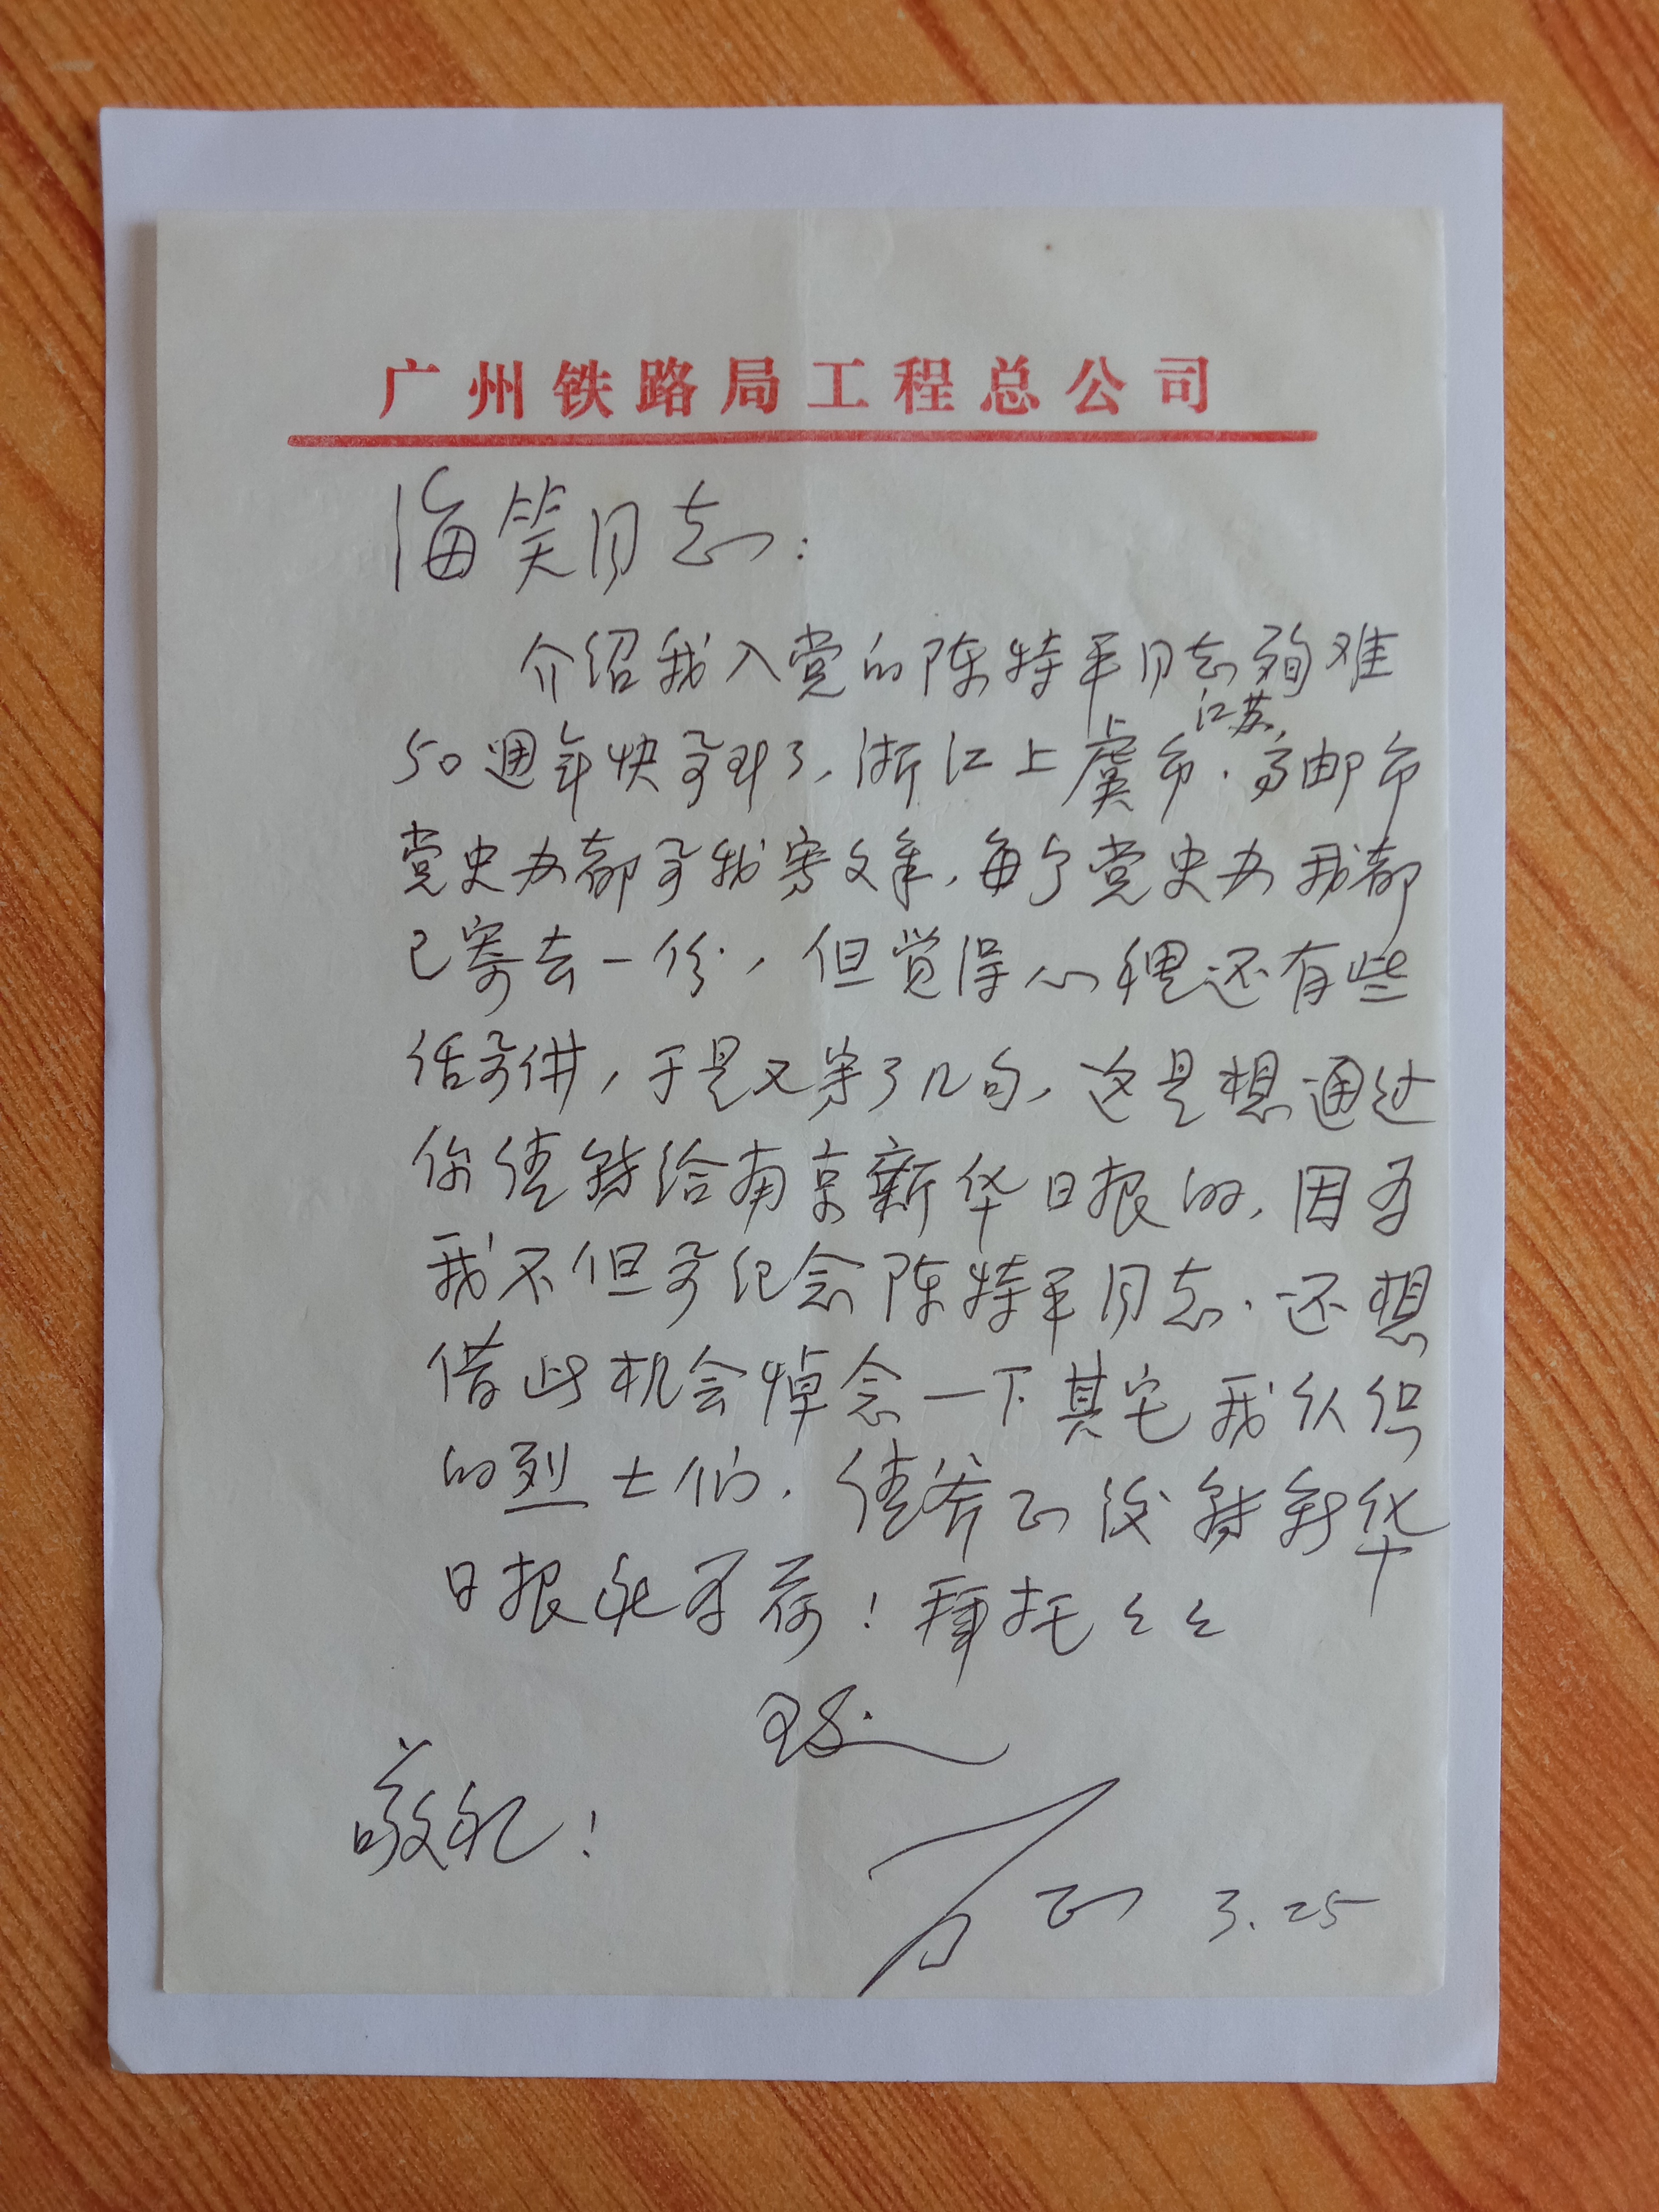 广州铁路局工程总公司
海笑同志：
介绍我入党的陈特平同志殉难
50週年快要到了，浙江上虞市、江苏高邮市
党史办都要我写文章，每个党史办我都
已寄去一份，但觉得心里还有些
话要讲，于是又写了几句，这是想通过
你转给南京新华日报的，因为
我不但要纪念陈特平同志，还想
借此机会悼念一下其它我认识
的烈士们，请斧正后转新华
日报社为荷！拜托々々
致
敬礼！
方正 3.25